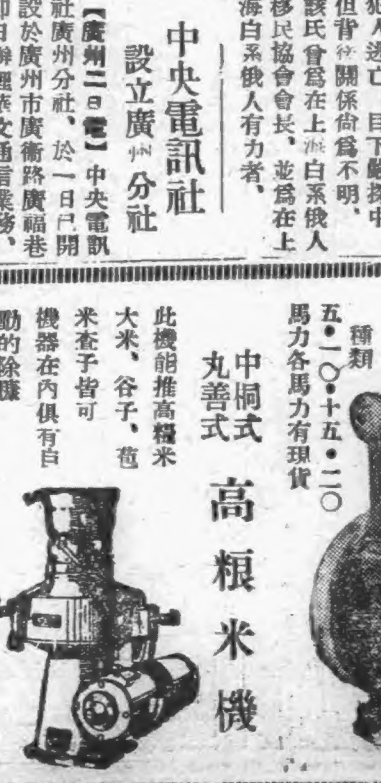 犯人逃亡、目下嚴探中
但背後關係尙爲不明、
該氏曾爲在上海白系俄人
移民協會會長、並爲在上
海白系俄人有力者、
中央電訊社
設立廣州分社
【廣州二日電】中央電訊
社廣州分社、於一日已開
設於廣州市廣衞路廣福巷
卽日辦理華文通信業務、
種類
五•一〇•十五•二〇
馬力各馬力有現貨
中桐式
丸善式
高粮米機
此機能推高糧米
大米、谷子、苞
米査子皆可
機器在內俱有自
動的除糠